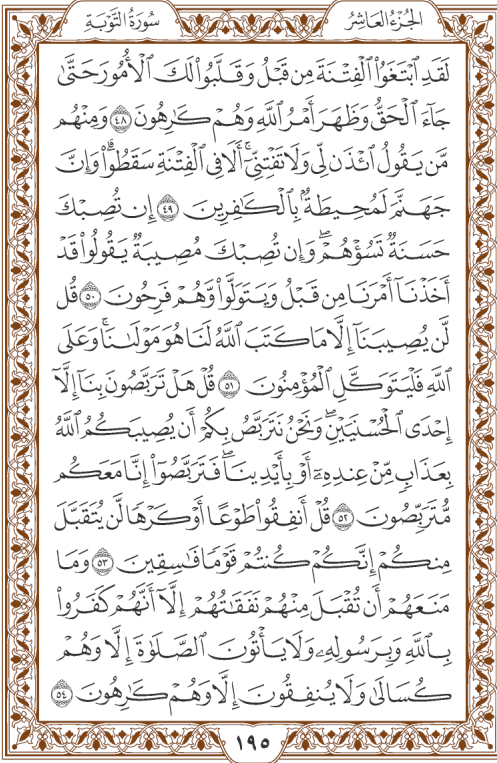 الجزء العاشر سورة التوبة
لَقَدِ ٱبۡتَغَوُاْ ٱلۡفِتۡنَةَ مِن قَبۡلُ وَقَلَّبُواْ لَكَ ٱلۡأُمُورَ حَتَّىٰ
جَآءَ ٱلۡحَقُّ وَظَهَرَ أَمۡرُ ٱللَّهِ وَهُمۡ كَٰرِهُونَ ٤٨ وَمِنۡهُم
مَّن يَقُولُ ٱئۡذَن لِّي وَلَا تَفۡتِنِّيٓۚ أَلَا فِي ٱلۡفِتۡنَةِ سَقَطُواْۗ وَإِنَّ
جَهَنَّمَ لَمُحِيطَةُۢ بِٱلۡكَٰفِرِينَ ٤٩ إِن تُصِبۡكَ
حَسَنَةٞ تَسُؤۡهُمۡۖ وَإِن تُصِبۡكَ مُصِيبَةٞ يَقُولُواْ قَدۡ
أَخَذۡنَآ أَمۡرَنَا مِن قَبۡلُ وَيَتَوَلَّواْ وَّهُمۡ فَرِحُونَ ٥٠ قُل
لَّن يُصِيبَنَآ إِلَّا مَا كَتَبَ ٱللَّهُ لَنَا هُوَ مَوۡلَىٰنَاۚ وَعَلَى
ٱللَّهِ فَلۡيَتَوَكَّلِ ٱلۡمُؤۡمِنُونَ ٥١ قُلۡ هَلۡ تَرَبَّصُونَ بِنَآ إِلَّآ
إِحۡدَى ٱلۡحُسۡنَيَيۡنِۖ وَنَحۡنُ نَتَرَبَّصُ بِكُمۡ أَن يُصِيبَكُمُ ٱللَّهُ
بِعَذَابٖ مِّنۡ عِندِهِۦٓ أَوۡ بِأَيۡدِينَاۖ فَتَرَبَّصُوٓاْ إِنَّا مَعَكُم
مُّتَرَبِّصُونَ ٥٢ قُلۡ أَنفِقُواْ طَوۡعًا أَوۡ كَرۡهٗا لَّن يُتَقَبَّلَ
مِنكُمۡ إِنَّكُمۡ كُنتُمۡ قَوۡمٗا فَٰسِقِينَ ٥٣ وَمَا
مَنَعَهُمۡ أَن تُقۡبَلَ مِنۡهُمۡ نَفَقَٰتُهُمۡ إِلَّآ أَنَّهُمۡ كَفَرُواْ
بِٱللَّهِ وَبِرَسُولِهِۦ وَلَا يَأۡتُونَ ٱلصَّلَوٰةَ إِلَّا وَهُمۡ
كُسَالَىٰ وَلَا يُنفِقُونَ إِلَّا وَهُمۡ كَٰرِهُونَ ٥٤
١٩٥